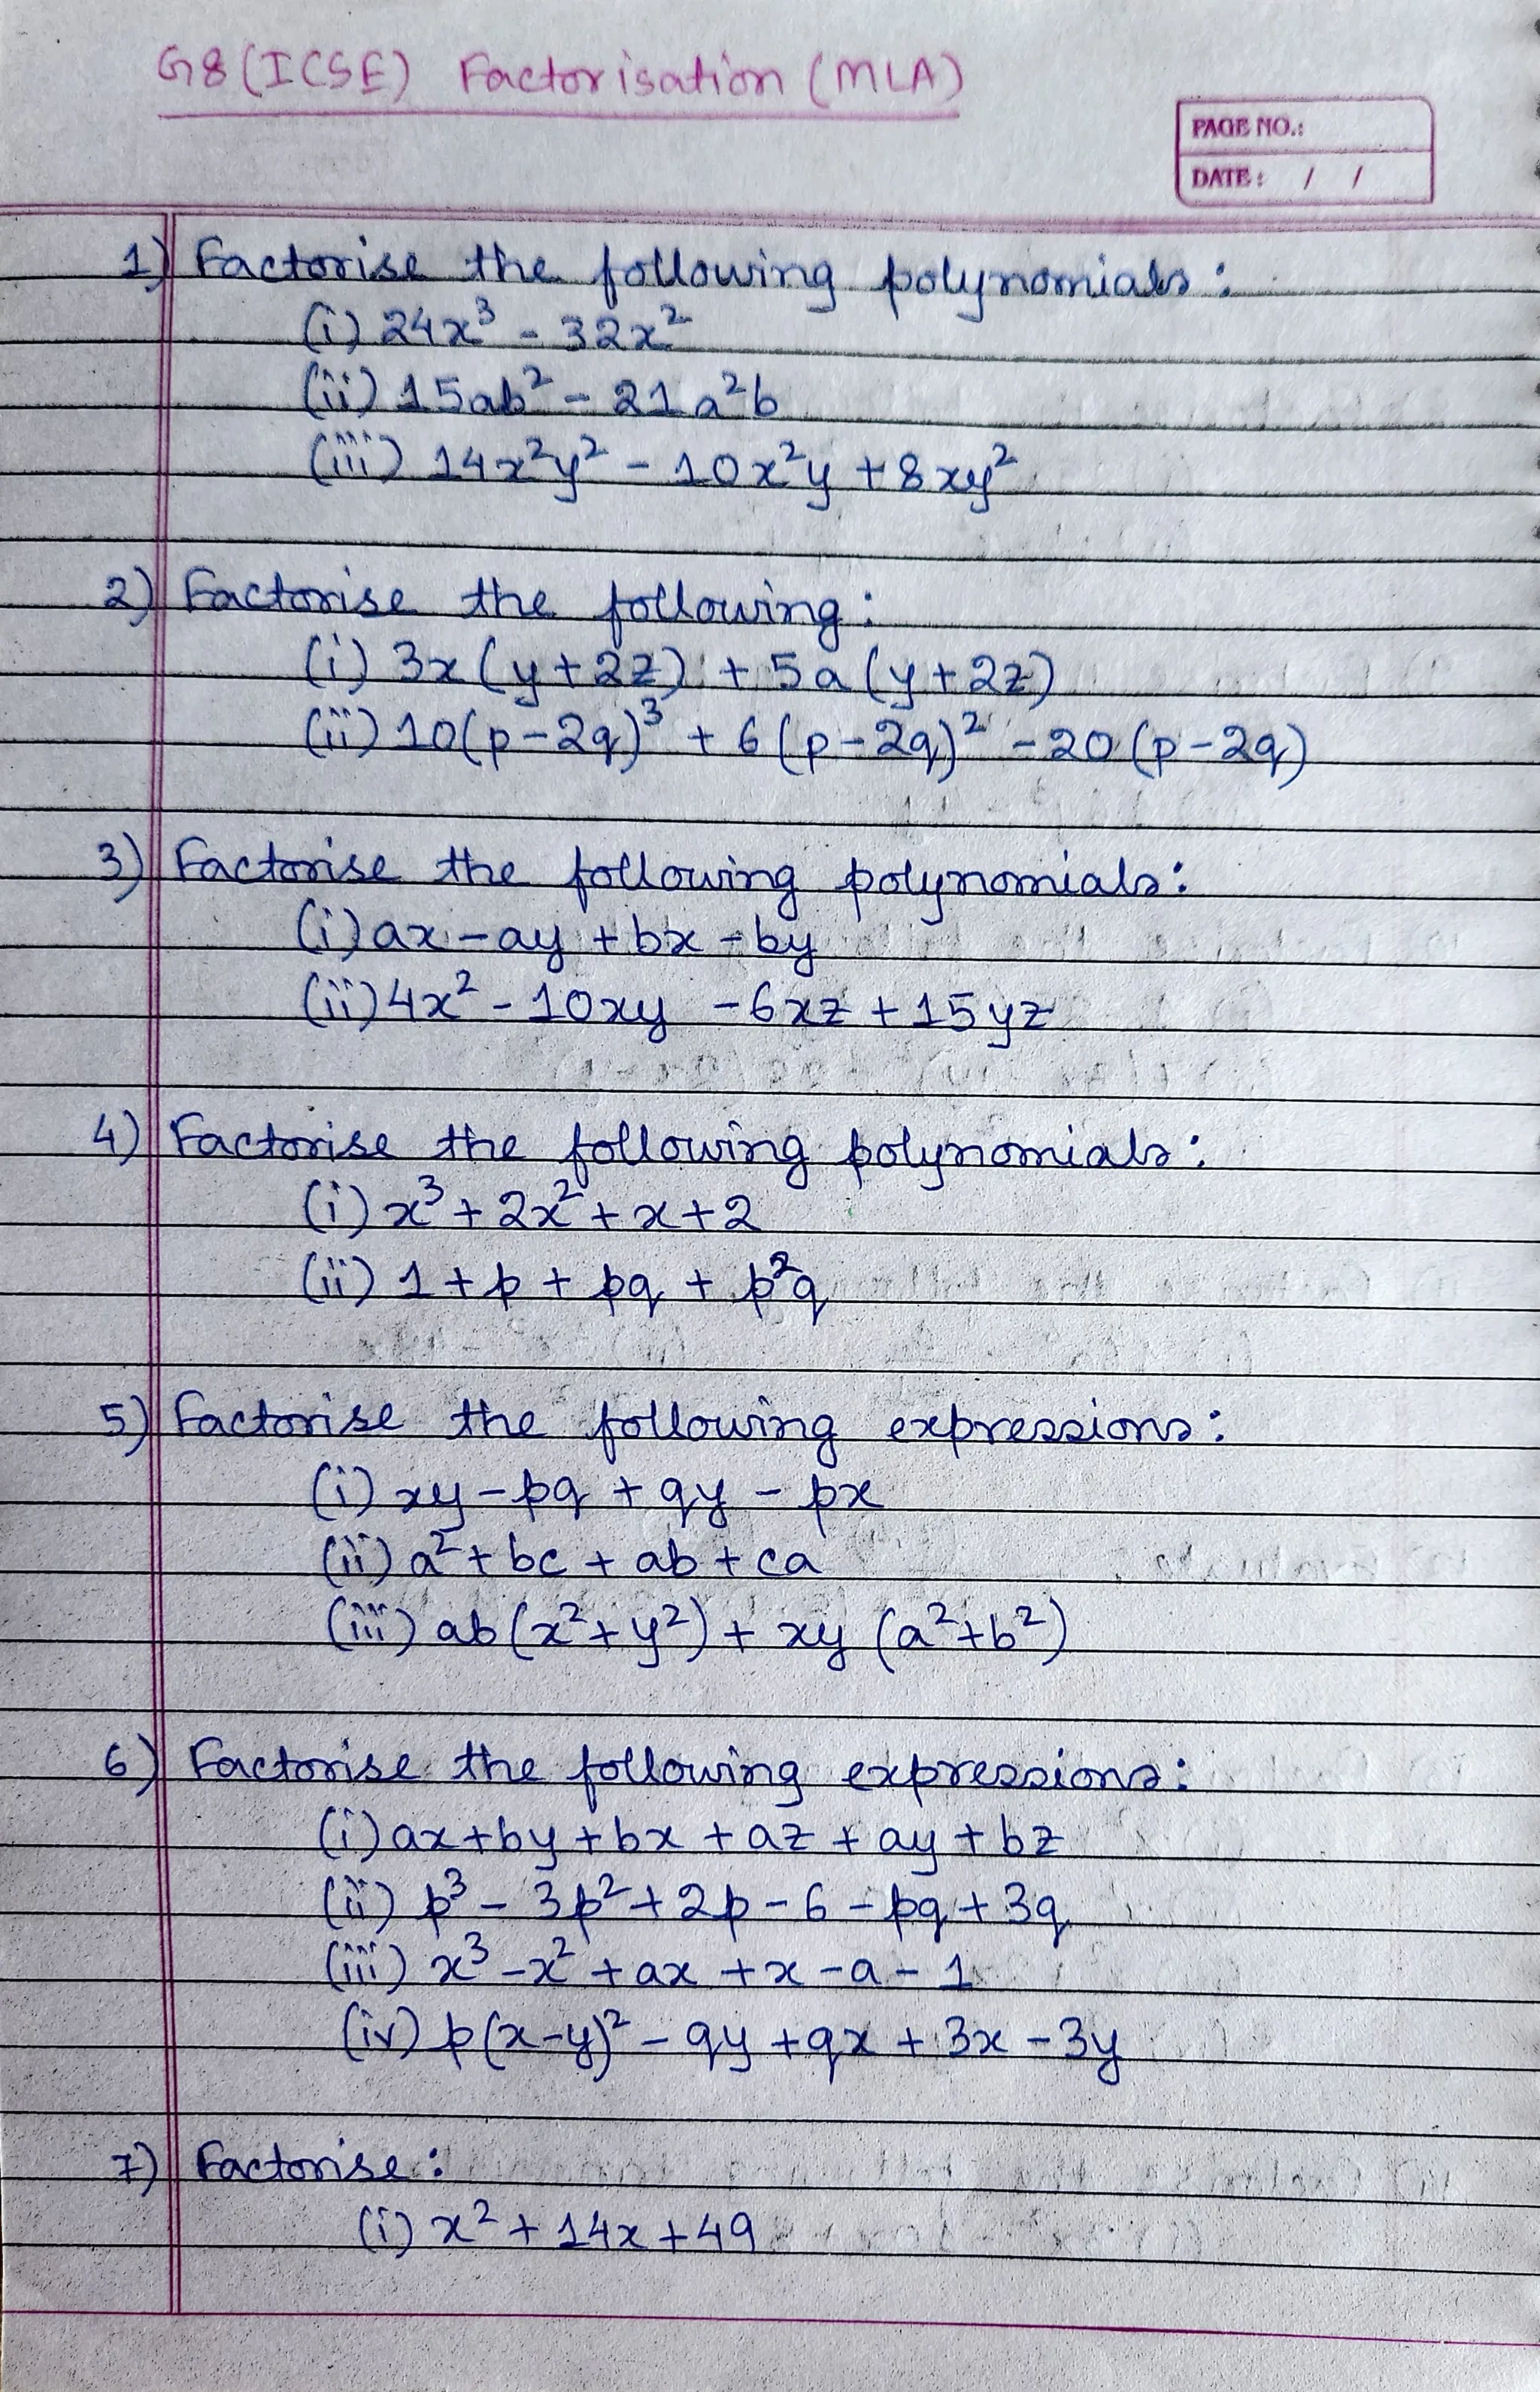 G8 (ICSE) Factorisation (MLA)
PAGE NO.:
DATE: / /
1) Factorise the following polynomials:
(i) 24x³ - 32x²
(ii) 15ab² - 21a²b
(iii) 14x²y² - 10x²y + 8xy²
2) Factorise the following:
(i) 3x(y+2z) + 5a(y+2z)
(ii) 10(p-2q)³ + 6(p-2q)² - 20(p-2q)
3) Factorise the following polynomials:
(i) ax - ay + bx - by
(ii) 4x² - 10xy - 6xz + 15yz
4) Factorise the following polynomials:
(i) x³ + 2x² + x + 2
(ii) 1 + p + pq + p²q
5) Factorise the following expressions:
(i) xy - pq + qy - px
(ii) a² + bc + ab + ca
(iii) ab(x²+y²) + xy(a²+b²)
6) Factorise the following expressions:
(i) ax + by + bx + az + ay + bz
(ii) p³ - 3p² + 2p - 6 - pq + 3q
(iii) x³ - x² + ax + x - a - 1
(iv) p(x-y)² - qy + qx + 3x - 3y
7) Factorise:
(i) x² + 14x + 49